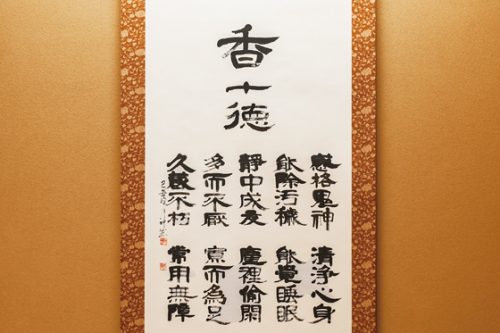 香十德
感格鬼神 清浄心身
能除汚穢 能覺睡眠
静中成友 塵裡偷閑
多而不厭 寡而為足
久蔵不朽 常用無障